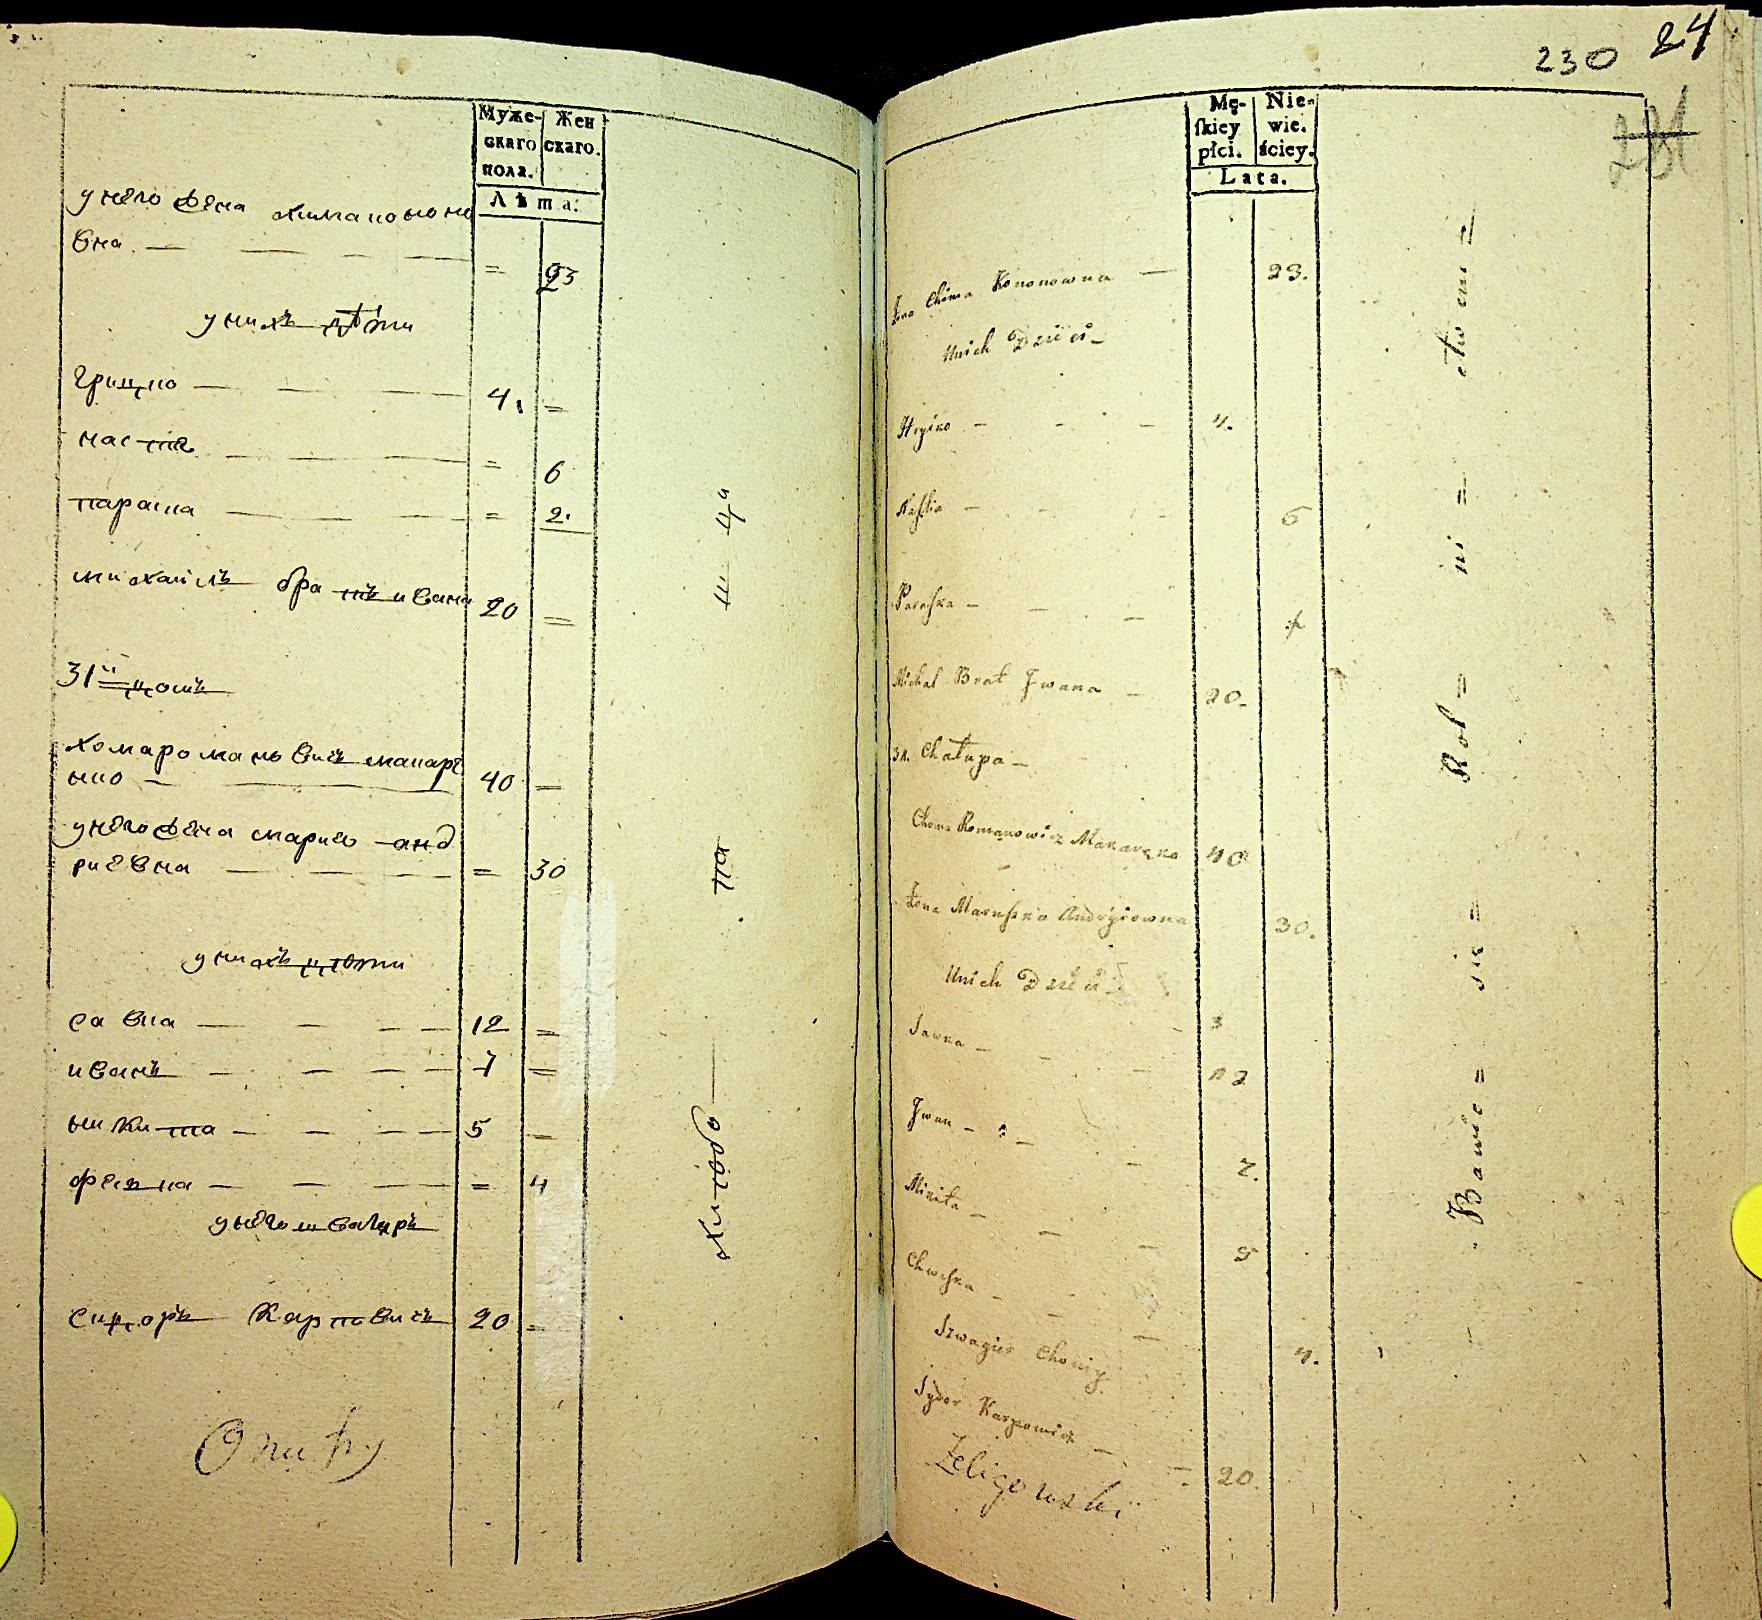 Муже-
скаго
пола.
Жен
скаго.
Лѣта:
у него жена химка кононо
вна — — — — = 23
у нихъ дѣти
Грицко — — — 4. =
настя — — — = 6
параска — — — = 2.
михайлъ братъ ивана 20 =
31й домъ
хома романовичъ макаре
нко — — 40 =
у него жена мария анд
риевна — — — = 30
у нихъ дѣти
савка — — — — 12 =
иванъ — — — — 7 =
никита — — — — 5 =
фецка — — — — = 4
у него швагеръ
сидоръ Карповичъ 20 =
хлѣбо — па
24
230
231
Mę-
skiey
płci.
Nie-
wie.
ściey.
Lata.
Żona Chima Kononowna — 23.
Unich Dzieci _
Hryćko — — — 4.
Nastia — — — 6
Paraska — — —
Michał Brat Jwana — 20.
31. Chałupa —
Choma Romanowicz Makarenko 40
Żona Maruszka Andryiowna 30.
Unich Dzieci
Sawka — — — 12
Jwan — — — 7.
Mikita — — — 5
Chweska — — — 4.
Szwagier Chomy
Sydor Karpowicz — — 20.
Żeligowski
Bawie = się = Rol = ni = ctwem =